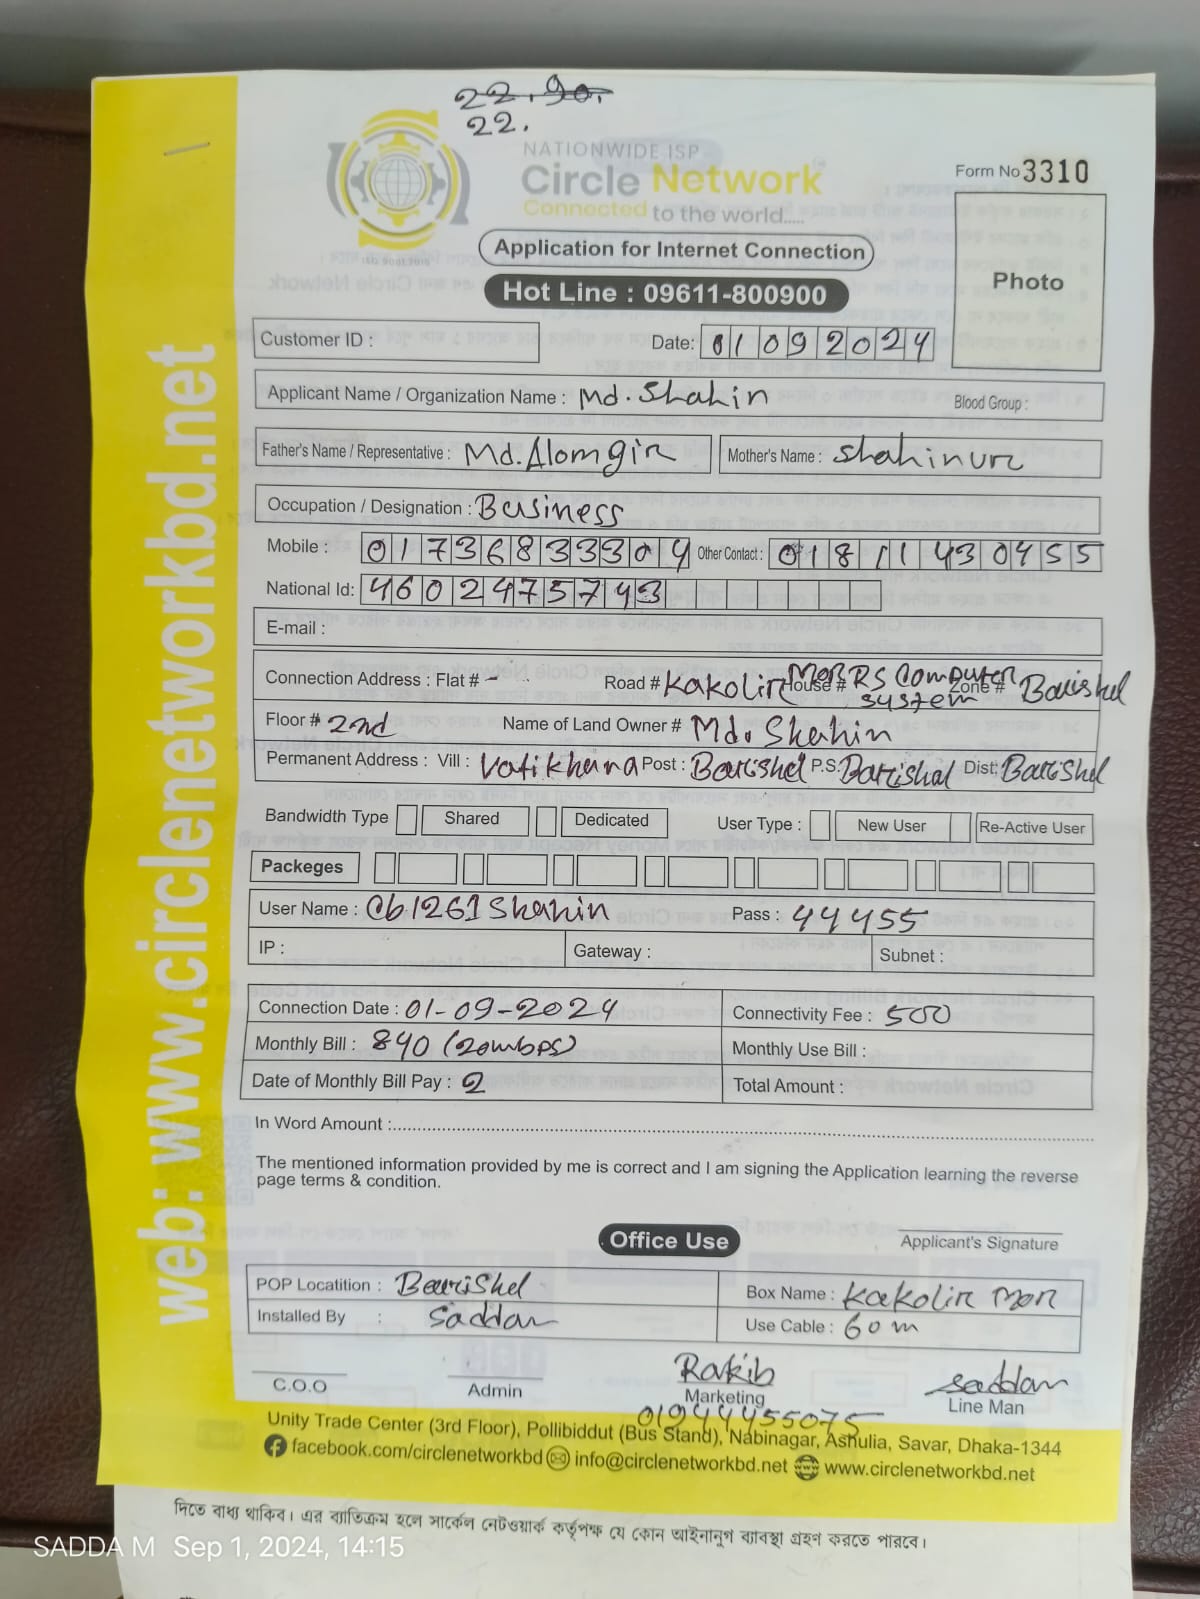 22.90.
22.
NATIONWIDE ISP
Circle Network
Connected to the world.....
ISO 9001:2015
Form No 3310
Photo
Application for Internet Connection
Hot Line : 09611-800900
Customer ID :
Date: 01092024
Applicant Name / Organization Name : Md. Shahin Blood Group :
Father's Name / Representative : Md. Alomgir Mother's Name : Shahinur
Occupation / Designation : Business
Mobile : 01736833304 Other Contact : 01811430455
National Id: 4602475743
E-mail :
Connection Address : Flat # - Road # Kakolir Mor House # RS Computer System Zone # Barishal
Floor # 2nd Name of Land Owner # Md. Shahin
Permanent Address : Vill : Vatikhana Post : Barishal P.S: Barishal Dist: Barishal
Bandwidth Type Shared Dedicated User Type : New User Re-Active User
Packeges
User Name : Cb1261Shahin Pass : 44455
IP : Gateway : Subnet :
Connection Date : 01-09-2024 Connectivity Fee : 500
Monthly Bill : 840 (20mbps) Monthly Use Bill :
Date of Monthly Bill Pay : 2 Total Amount :
In Word Amount :
The mentioned information provided by me is correct and I am signing the Application learning the reverse
page terms & condition.
Office Use
Applicant's Signature
POP Locatition : Barishal Box Name : Kakolir Mor
Installed By : Saddam Use Cable : 60m
Rakib Saddam
C.O.O Admin Marketing Line Man
01944455075
Unity Trade Center (3rd Floor), Pollibiddut (Bus Stand), Nabinagar, Ashulia, Savar, Dhaka-1344
facebook.com/circlenetworkbd info@circlenetworkbd.net www.circlenetworkbd.net
web: www.circlenetworkbd.net
দিতে বাধ্য থাকিব। এর ব্যতিক্রম হলে সার্কেল নেটওয়ার্ক কর্তৃপক্ষ যে কোন আইনানুগ ব্যাবস্থা গ্রহণ করতে পারবে।
SADDA M Sep 1, 2024, 14:15